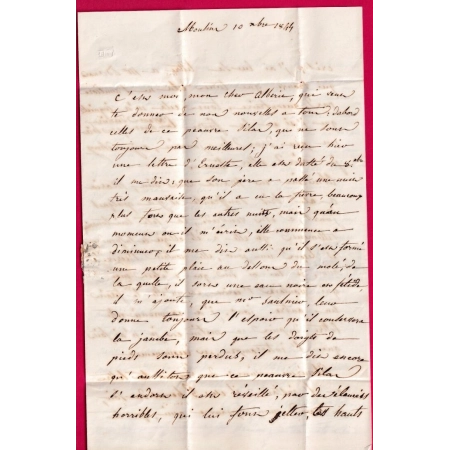 Moulins 10 xbre 1844
C'est moi, mon cher Alberic, qui veux
te donner de nos nouvelles a tous, d'abord
celles de ce pauvre Pilar, que ne sont
toujours pas meilleures; j'ai recu hier
une lettre d'Ernest, elle est datée du 8.
il me dit, que son père a passé une nuit
très mauvaise, qu'il a eu la fievre beaucoup
plus fort que les autres nuits, mais qu'au
moment ou il m'écrivait, elle commence a
diminuer, il me dit aussi qu'il s'est formé
une petite plaie au dessous du
la quelle, il sort une eau noire
il m'ajoute, que mr Saulnier, leur
donne toujours l'espoir qu'il conservera
la jambe, mais que les doigts de
pieds sont perdus, il me dit encore
qu'aussitot que ce pauvre Pilar
s'endort il est réveillé, par des
horribles, qui lui font jetter, les hauts